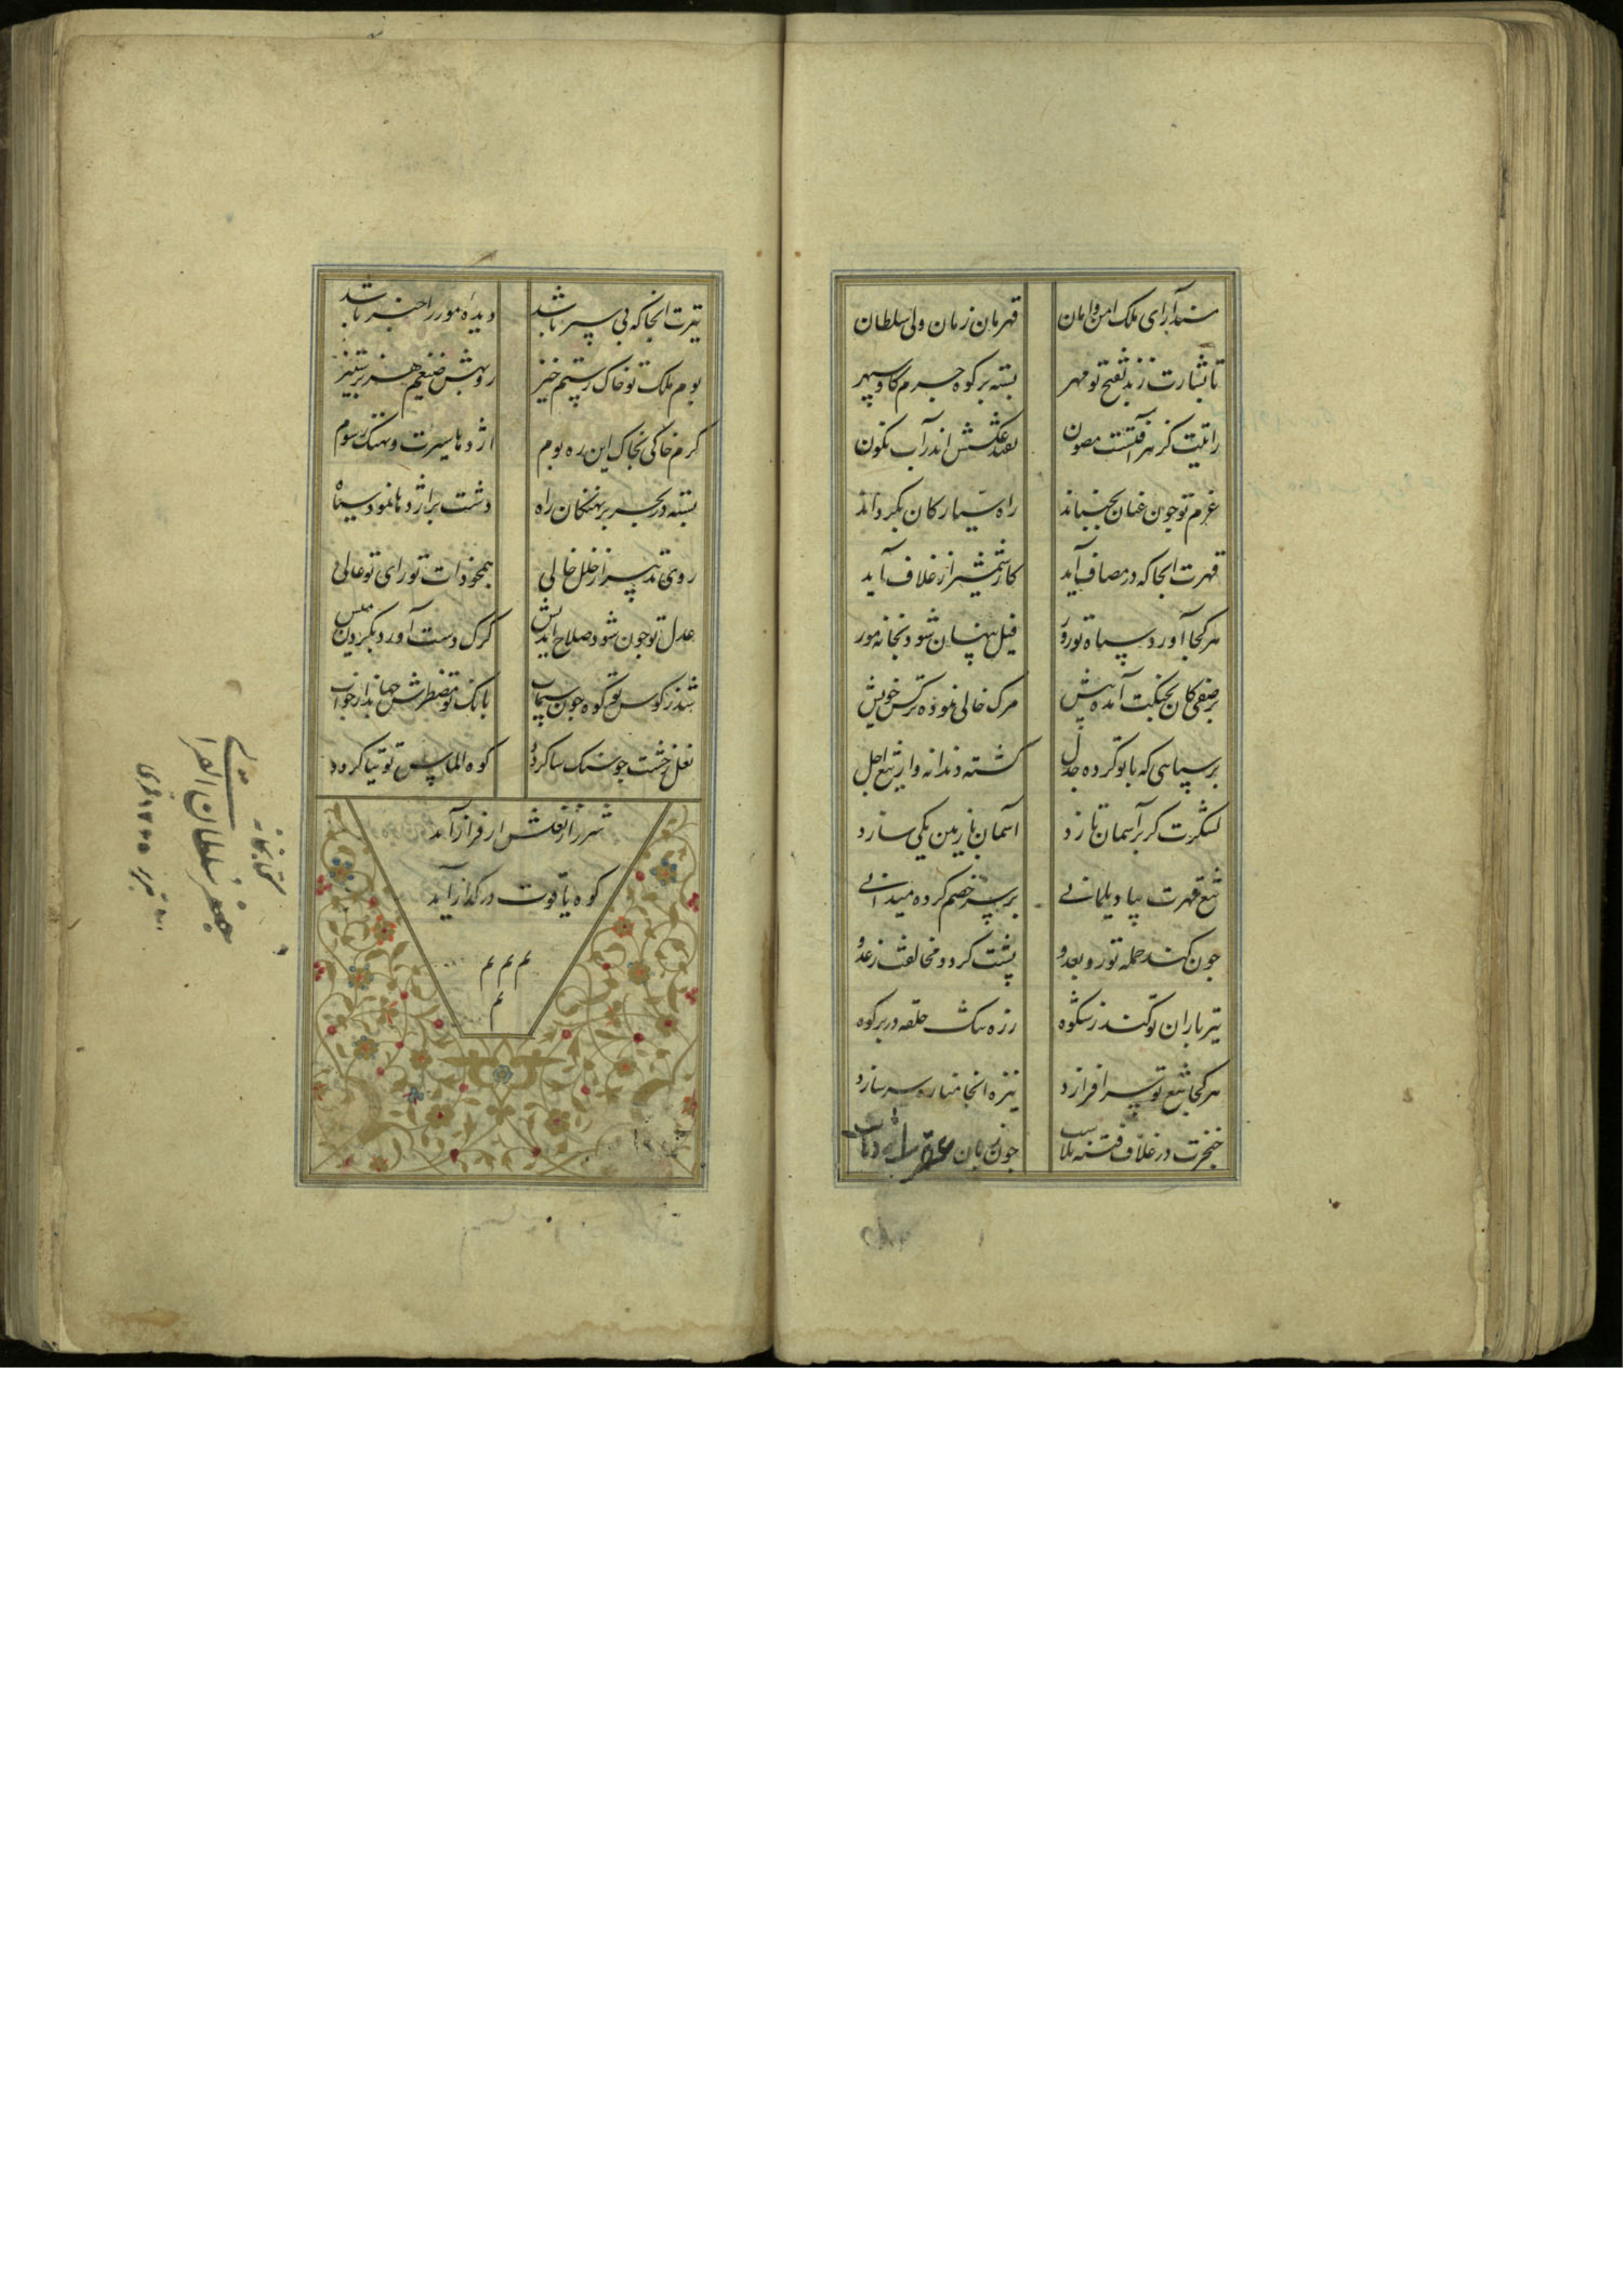 مسندآرای ملک امن وامان قهرمان زمان ولی سلطان
تا بشارت زند بفتح تو مهر بسته بر کوه جرم کاو سپهر
رایتت کز هر آفتست مصون فکند عکسش اندر آب نکون
عزم تو جون عنان بجنباند راه سیارکان بکرداند
قهرت انجا که در مصاف آید کار شمشیر از غلاف آید
هر کجا آورد سپاه تو زور فیل پنهان شود بخانه مور
بر صفی کان بجنکت آمده پیش مرک خالی نموده ترکش خویش
بر سپاهی که با تو کرده جدل کشته دندانه دار تیغ اجل
لشکرت کر بر آسمان تازد آسمان با زمین یکی سازد
تیغ قهرت بپا دیلمانی بر سر خصم کرده میدانی
جون کند حمله تو رو بعدو پشت کردد مخالفت ز عدو
تیر باران تو کند ز شکوه زره تنک حلقه در بر کوه
هر کجا تیغ تو سر افرازد نیزه انجا مناره سر سازد
خنجرت در غلاف فتنه بلاست جون زبان
تیرت انجا که بی سپر باشد دیده مور را خبر باشد
بوم ملک تو خاک رستم خیز روبهش ضیغم هزبر ستیز
کرم خاکی بخاک این ره بوم اژدها سیرت و نهنک رسوم
بسته در بحر بر نهنکان راه دشت بر اژدها نمود سیاه
روی تدبیر از خلل خالی همجو ذات تو رای تو عالی
عدل تو جون شود صلاح اندیش کرک دست آورد بکردن میش
شد ز کوس تو کوه جون سیماب بانک تو مضطرش جهاند از خواب
نعل رخشت جو سنک سا کردد کوه الماس توتیا کردد
شرر از نعلش ار فراز آید
کوه یاقوت در کداز آید
م م م
م
کتابخانه
جعفر سلطان القرائی